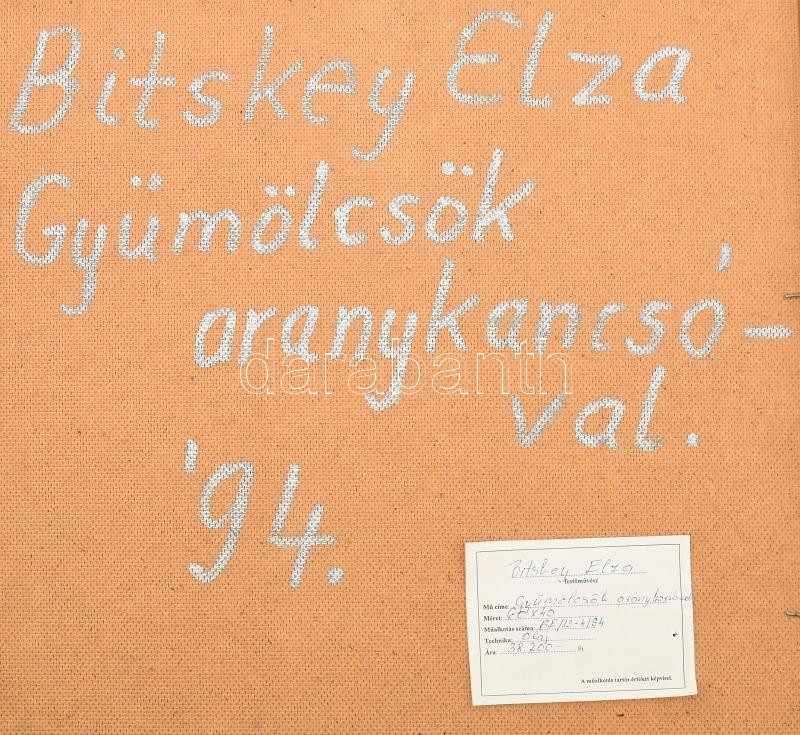 Bitskey Elza
Gyümölcsök
aranykancsó-
val.
'94.
darabanth
Bitskey Elza
festőművész
Mű címe: Gyümölcsök
Méret: x40
Műalkotás száma: BE/13-4/94
Technika: olaj
Ára: 38.200 Ft
A műalkotás tartós értéket képvisel.